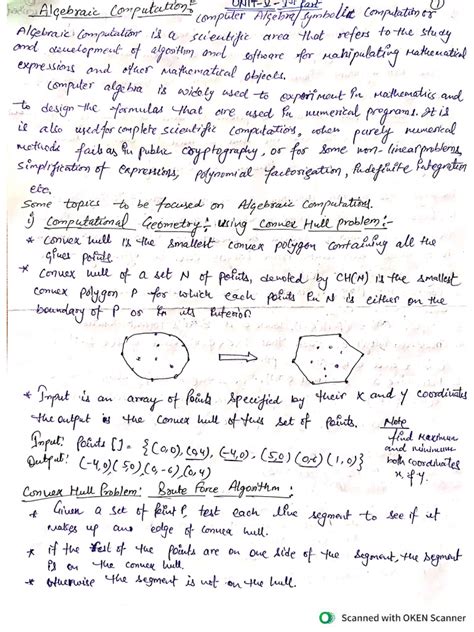 UNIT-V-Ist Part ①
Algebraic Computation:
Computer Algebra/Symbolic Computation or
Algebraic Computation is a scientific area that refers to the study
and development of algorithm and software for Manipulating Mathematical
expressions and other Mathematical objects.
Computer algebra is widely used to experiment in Mathematics and
to design the formulas that are used in numerical programs. It is
is also used for complete scientific Computations, when purely numerical
methods fail as in public cryptography, or for some non-linear problems,
Simplification of expressions, polynomial factorization, Indefinite Integration
etc.
Some topics to be focused on Algebraic Computations.
i) Computational Geometry: using Convex Hull problem:-
* Convex hull is the smallest convex polygon containing all the
given points
* Convex hull of a set N of points, denoted by CH(N) is the smallest
convex polygon P for which each points in N is either on the
boundary of P or in its Interior.
* Input is an array of points specified by their X and Y coordinates
the output is the convex hull of this set of points.
Note
find maximum
and minimum
both coordinates
x, if y.
Input: Points [] = {(0,0), (0,4), (-4,0), (5,0) (0,-6) (1,0)}
Output: (-4,0) (5,0), (0,-6), (0,4)
Convex Hull Problem: Brute Force Algorithm:
* Given a set of point P, test each line segment to see if it
makes up an edge of convex hull.
* if the rest of the points are on one side of the segment, the segment
is on the convex hull.
* otherwise the segment is not on the hull.
Scanned with OKEN Scanner